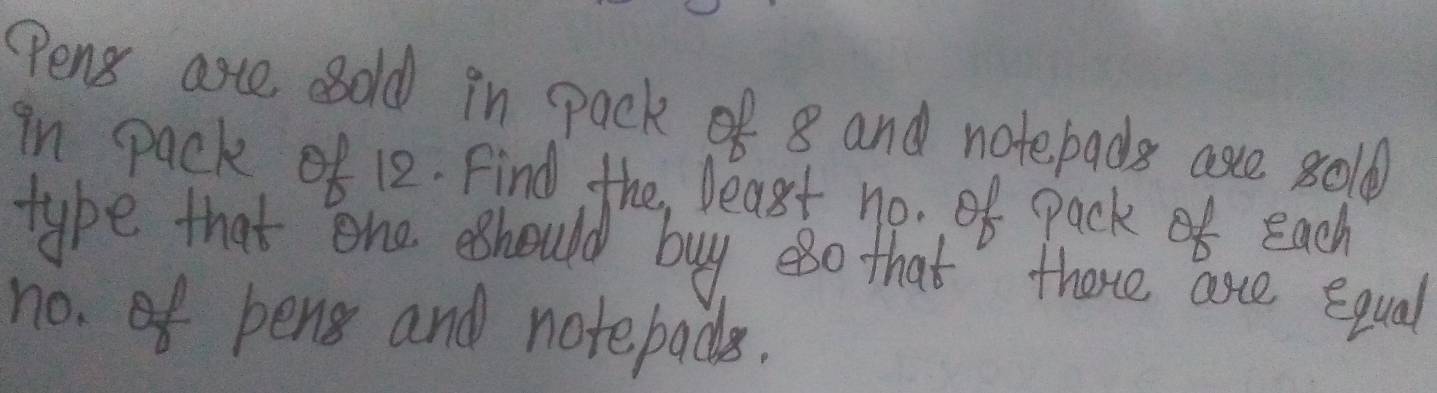 Pens are sold in pack of 8 and notepads are sold
in pack of 12. Find the least no. of pack of Each
type that one should buy so that there are Equal
no. of pens and notepads.